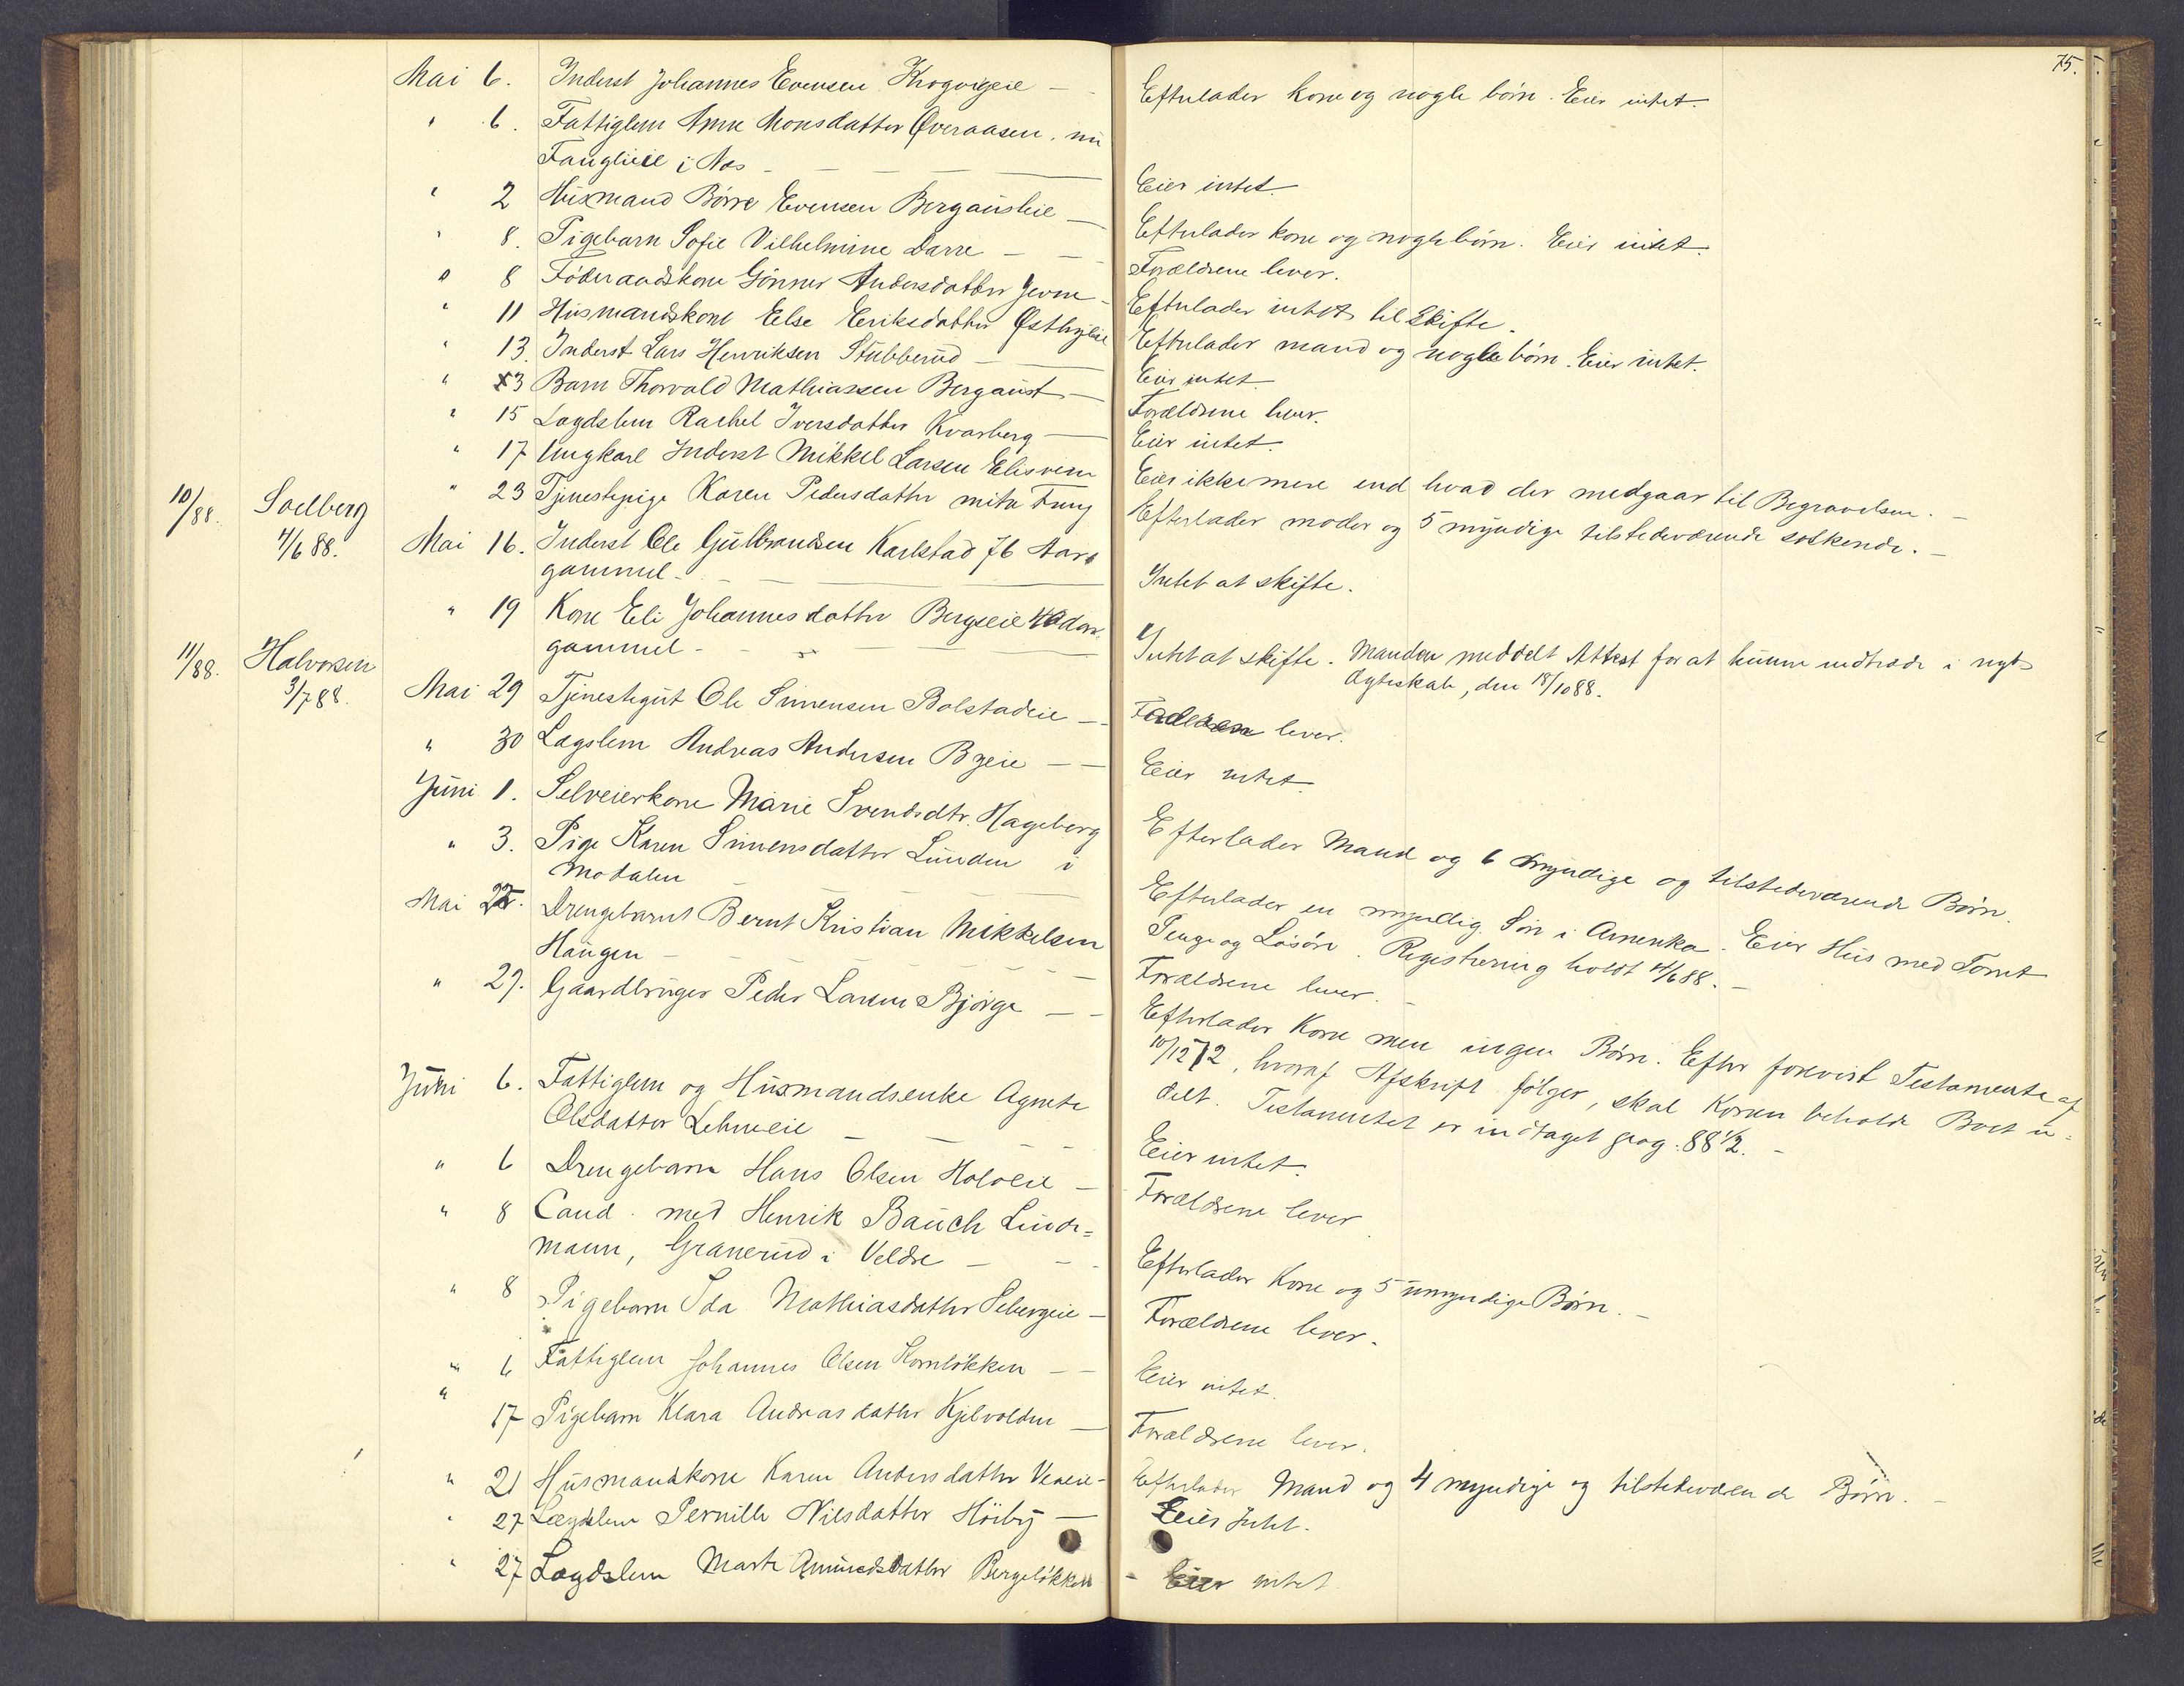 75.
Mai 6. Inderst Johannes Evensen Krogvigeie — Efterlader kone og nogle börn. Eier intet.
" 6. Fattiglem Anne Monsdatter Överaasen, nu
Fauglieie i Næs — Eier intet.
" 2 Husmand Börre Evensen Bergausteie — Efterlader kone og nogle börn. Eier intet.
" 8. Pigebarn Sofie Vilhelmine Darre — Forældrene lever.
" 8 Föderaadskone Gönner Andersdatter Jevne — Efterlader intet til Skifte.
" 11 Husmandskone Else Eriksdatter Östbyeie Efterlader mand og nogle börn. Eier intet.
" 13. Inderst Lars Henriksen Stubberud — Eier intet.
" 13 Barn Thorvald Mathiassen Bergaust — Forældrene lever.
" 15 Lægdslem Rachel Iversdatter Kvarberg — Eier intet.
" 17 Ungkarl Inderst Mikkel Larsen Eier ikke mere end hvad der medgaar til Begravelsen. —
" 23 Tjenestepige Karen Pedersdatter Efterlader moder og 5 myndige tilstedeværende söskende. —
10/88. Soelberg 4/6 88.
Mai 16. Inderst Ole Gulbrandsen Karlstad 76 Aar
gammel — Intet at skifte.
" 19 Kone Eli Johannesdatter Bergseie
gammel — Intet at skifte. Manden meddelt Attest for at kunne indtræde i nyt
Ægteskab, den 18/10 88.
11/88. Halvorsen 3/7 88.
Mai 29 Tjenestegut Ole Simensen Bolstadeie — lever.
" 30 Lægslem Andreas Andersen Byeie — Eier intet.
Juni 1. Selveierkone Marie Svendsdtr. Hageberg Efterlader Mand og 6 myndige og tilstedeværende Börn.
" 3. Pige Karen Simensdatter Lunden i
Modalen Efterlader en myndig Sön i Amerika. Eier Hus med Tomt
Penge og Lösöre. Registrering holdt 4/6 88. —
Mai 22. Drengebarnet Bernt Kristian Mikkelsen
Haugen — Forældrene lever. —
" 29. Gaardbruger Peder Larsen Bjørge — Efterlader Kone men ingen Börn. Efter forevist Testamente af
10/12 72, hvoraf Afskrift fölger, skal Konen beholde Boet u-
delt. Testamentet er indtaget pag. 88 1/2. —
Juni 6. Fattiglem og Husmandsenke Agnete
Olsdatter Lehneeie — Eier intet.
" 6 Drengebarn Hans Olsen Holoeie — Forældrene lever
" 8 Cand. med Henrik Bauch Linde=
mann, Granerud i Veldre — Efterlader Kone og 5 umyndige Börn. —
" 8 Pigebarn Ida Mathiasdatter Sebergeie — Forældrene lever.
" 6 Fattiglem Johannes Olsen Kornlökken — Eier intet.
" 17 Pigebarn Klara Andreasdatter Kjelvolden — Forældrene lever.
" 21 Husmandskone Karen Andersdatter — Efterlader Mand og 4 myndige og tilstedeværende Börn. —
" 27 Lægdslem Pernille Nilsdatter Höiby — Eier Intet.
" 27 Lægdslem Marte Amundsdatter Bergelökken — Eier intet